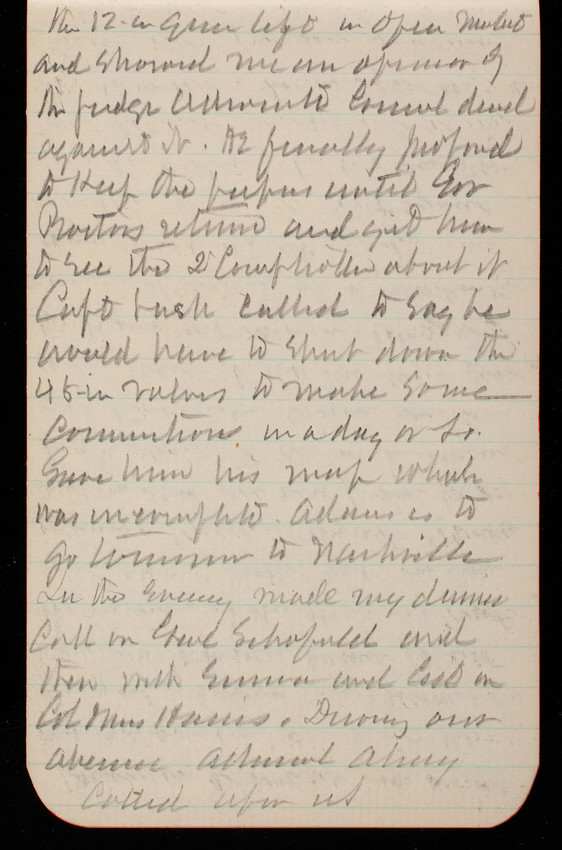 the 12-in Gun lift in open market
and showed me an opinion of
the Judge Advocate Genl dead
against it. He finally proposed
to Keep the papers until Gov
Proctors return and get him
to see the 2d Comptroller about it
Capt Lusk called to say he
would have to shut down the
48-in valves to make some
connections in a day or so.
Gave him his map which
was incomplete. Adams is to
go tomorrow to Nashville
In the Evening made my dinner
call on Genl Schofield and
then with Emma and called on
Col Mrs Harris. During our
absence Admiral
called upon us